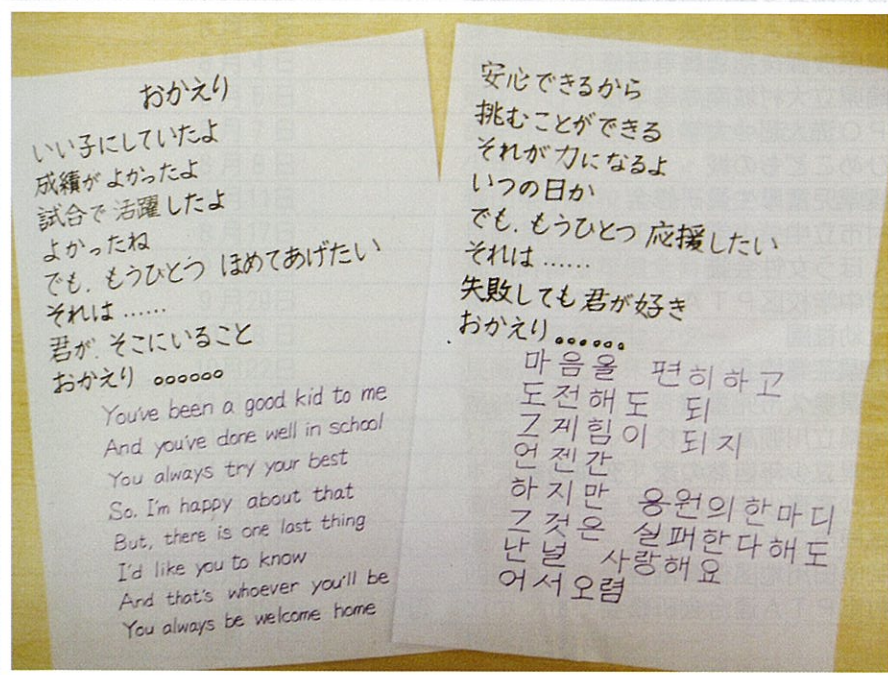 おかえり
いい子にしていたよ
成績がよかったよ
試合で活躍したよ
よかったね
でも、もうひとつ ほめてあげたい
それは……
君が、そこにいること
おかえり 。。。。。。
You've been a good kid to me
And you've done well in school
You always try your best
So, I'm happy about that
But, there is one last thing
I'd like you to know
And that's whoever you'll be
You always be welcome home
安心できるから
挑むことができる
それが力になるよ
いつの日か
でも、もうひとつ 応援したい
それは……
失敗しても君が好き
おかえり 。。。。。。
마음올 편히하고
도전해도 되
그게힘이 되지
언젠간
하지만 응원의한마디
그것은 실패한다해도
난널 사랑해요
어서오렴